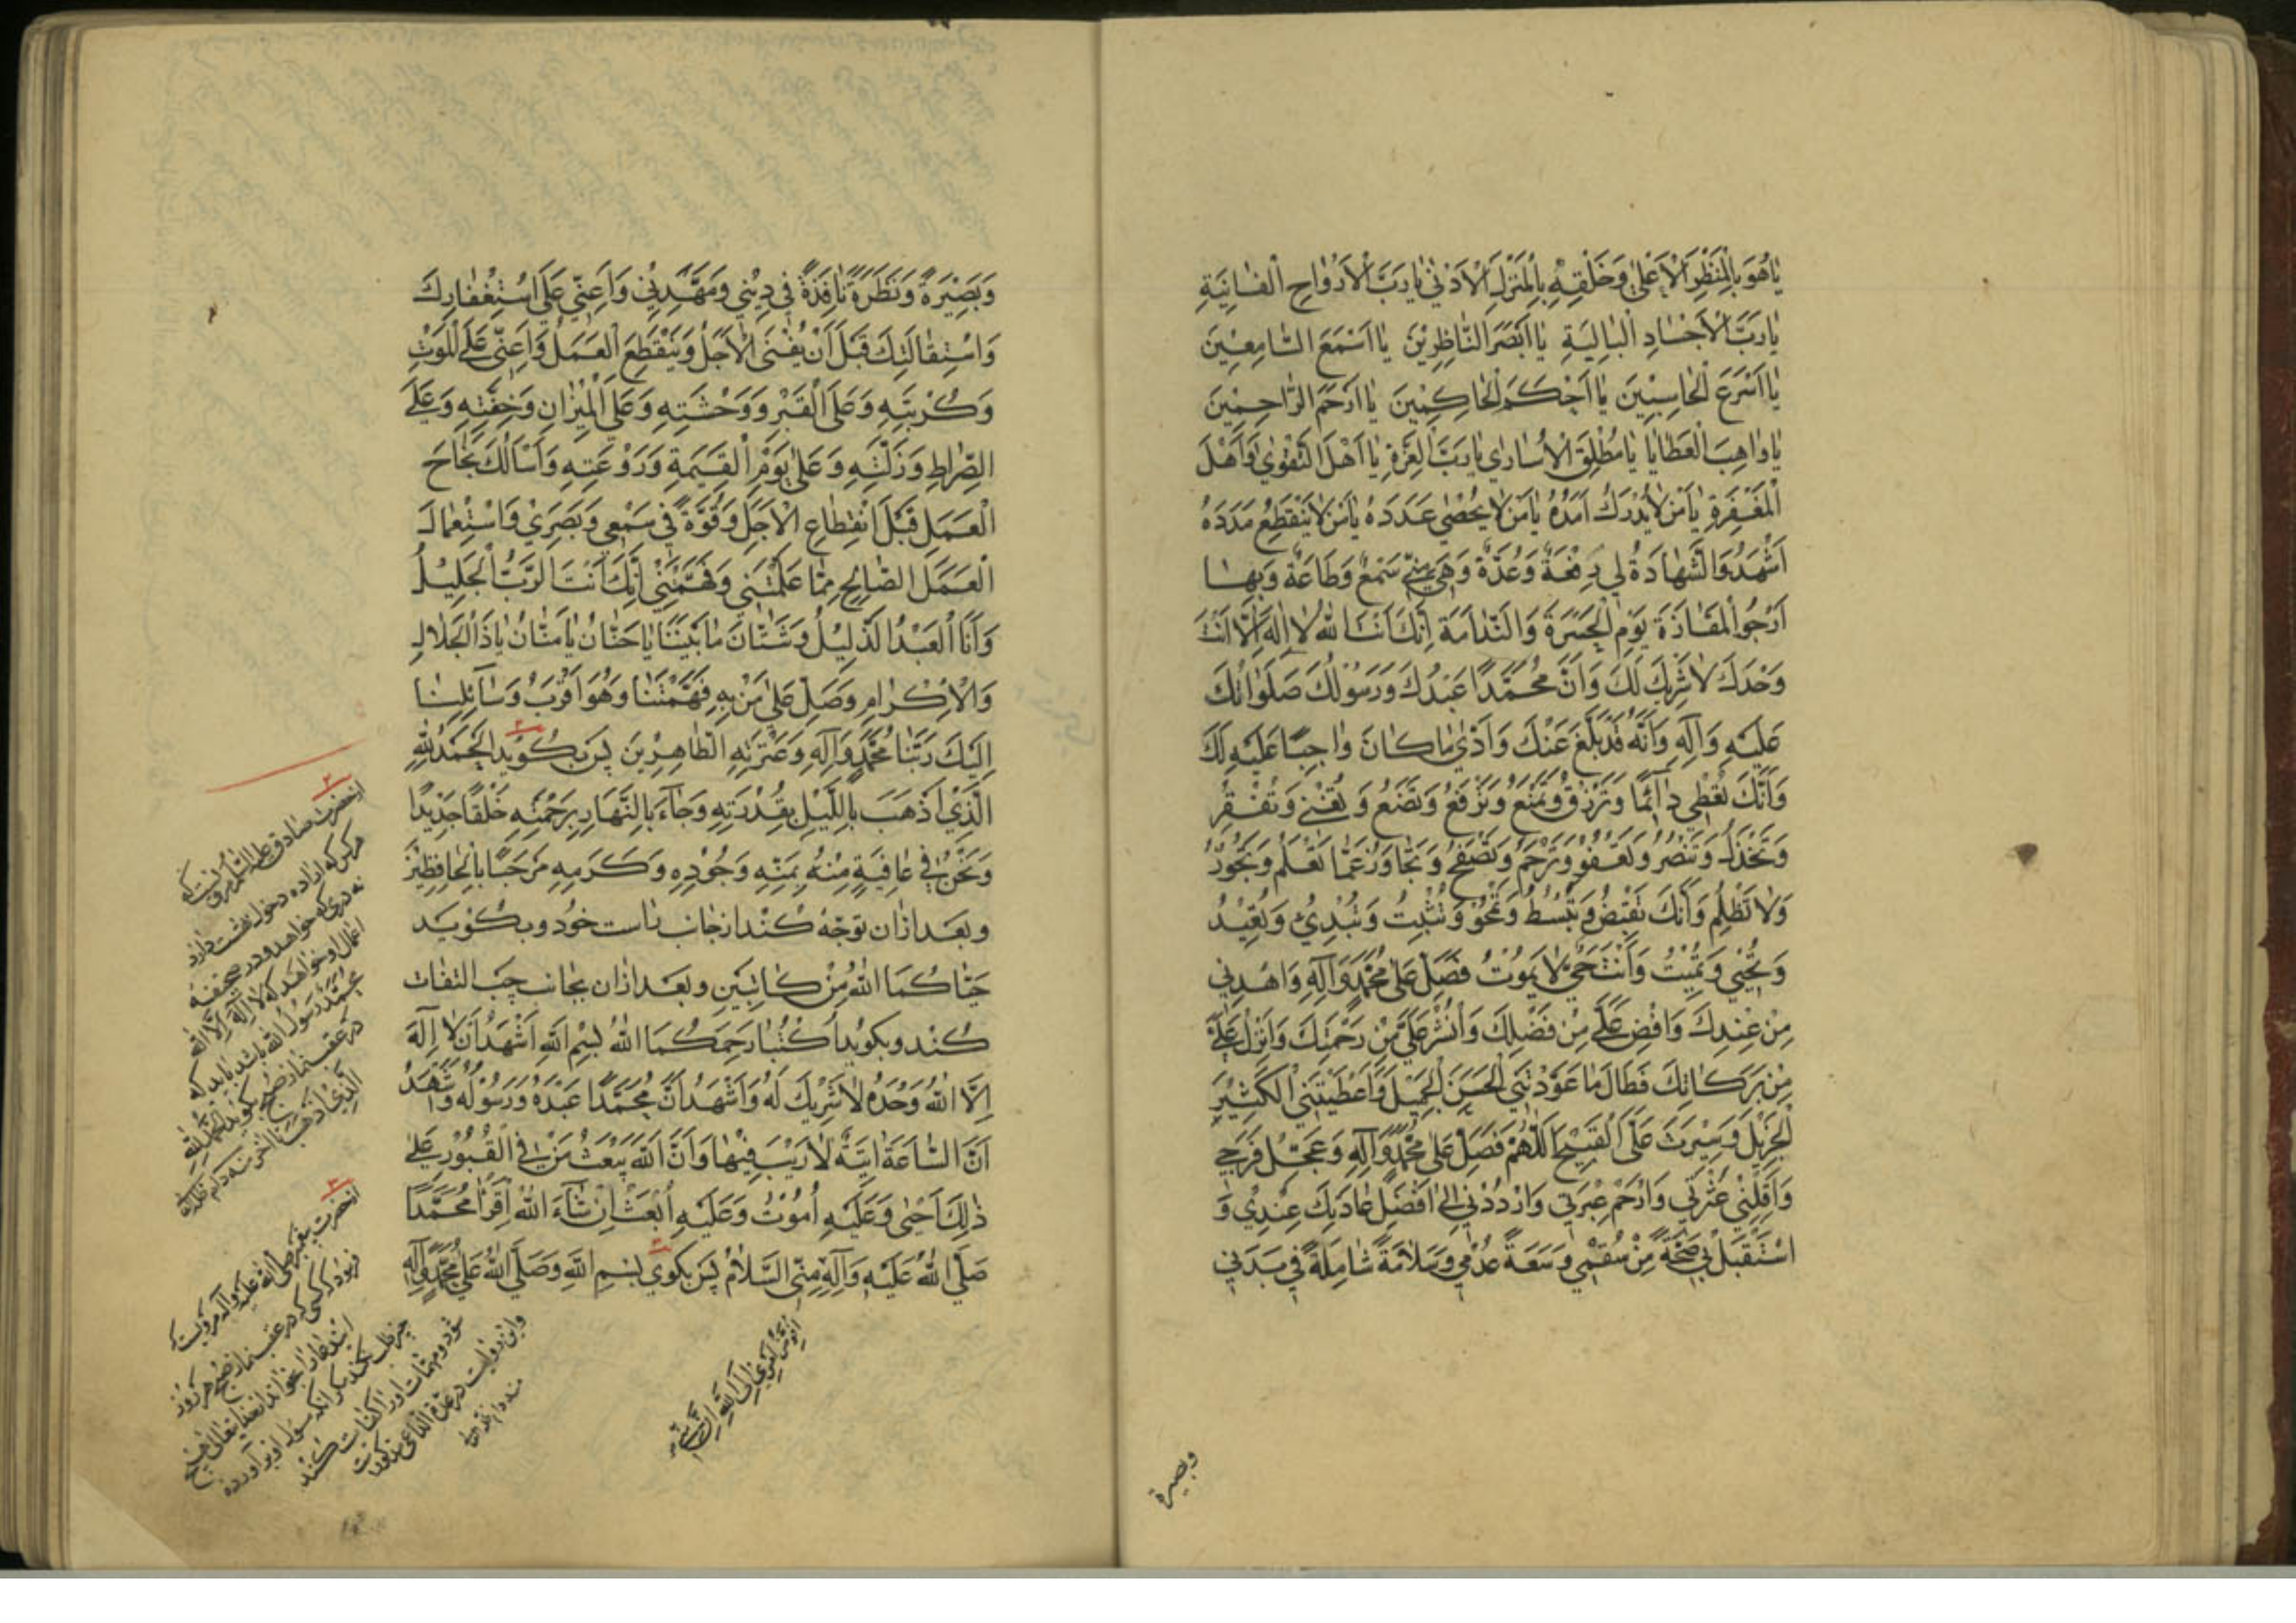 يَا هُوَ بِالْمَنْظَرِ الْأَعْلَىٰ وَخَلْقِهِ بِالْمَنْزِلِ الْأَدْنَىٰ يَا رَبَّ الْأَرْوَاحِ الْفَانِيَةِ
يَا رَبَّ الْأَجْسَادِ الْبَالِيَةِ يَا أَبْصَرَ النَّاظِرِينَ يَا أَسْمَعَ السَّامِعِينَ
يَا أَسْرَعَ الْحَاسِبِينَ يَا أَحْكَمَ الْحَاكِمِينَ يَا أَرْحَمَ الرَّاحِمِينَ
يَا وَاهِبَ الْعَطَايَا يَا مُطْلِقَ الْأُسَارَى يَا رَبَّ الْعِزَّةِ يَا أَهْلَ التَّقْوَىٰ وَأَهْلَ
الْمَغْفِرَةِ يَا مَنْ لَا يُدْرَكُ أَمَدُهُ يَا مَنْ لَا يُحْصَىٰ عَدَدُهُ يَا مَنْ لَا يَنْقَطِعُ مَدَدُهُ
أَشْهَدُ وَالشَّهَادَةُ لِي رِفْعَةٌ وَعُدَّةٌ وَهِيَ مِنِّي سَمْعٌ وَطَاعَةٌ وَبِهَا
أَرْجُو الْمَفَازَةَ يَوْمَ الْحَسْرَةِ وَالنَّدَامَةِ إِنَّكَ أَنْتَ اللَّهُ لَا إِلَٰهَ إِلَّا أَنْتَ
وَحْدَكَ لَا شَرِيكَ لَكَ وَأَنَّ مُحَمَّدًا عَبْدُكَ وَرَسُولُكَ صَلَوَاتُكَ
عَلَيْهِ وَآلِهِ وَأَنَّهُ قَدْ بَلَّغَ عَنْكَ وَأَدَّىٰ مَا كَانَ وَاجِبًا عَلَيْهِ لَكَ
وَأَنَّكَ تُعْطِي دَائِمًا وَتَرْزُقُ وَتَمْنَعُ وَتَرْفَعُ وَتَضَعُ وَتُغْنِي وَتُفْقِرُ
وَتَخْذُلُ وَتَنْصُرُ وَتَعْفُو وَتَرْحَمُ وَتَصْفَحُ وَتَجَاوَزُ عَمَّا تَعْلَمُ وَتَجُودُ
وَلَا تَظْلِمُ وَأَنَّكَ تَقْبِضُ وَتَبْسُطُ وَتَمْحُو وَتُثْبِتُ وَتُبْدِئُ وَتُعِيدُ
وَتُحْيِي وَتُمِيتُ وَأَنْتَ حَيٌّ لَا يَمُوتُ فَصَلِّ عَلَىٰ مُحَمَّدٍ وَآلِهِ وَاهْدِنِي
مِنْ عِنْدِكَ وَأَفِضْ عَلَيَّ مِنْ فَضْلِكَ وَانْشُرْ عَلَيَّ مِنْ رَحْمَتِكَ وَأَنْزِلْ عَلَيَّ
مِنْ بَرَكَاتِكَ فَطَالَ مَا عَوَّدْتَنِي الْحَسَنَ الْجَمِيلَ وَأَعْطَيْتَنِي الْكَثِيرَ
الْجَزِيلَ وَسَتَرْتَ عَلَيَّ الْقَبِيحَ اللَّهُمَّ فَصَلِّ عَلَىٰ مُحَمَّدٍ وَآلِهِ وَعَجِّلْ فَرَجِي
وَأَقِلْنِي عَثْرَتِي وَارْحَمْ عَبْرَتِي وَارْدُدْنِي إِلَىٰ أَفْضَلِ عَادَتِكَ عِنْدِي وَ
اسْتَقْبِلْ بِي صِحَّةً مِنْ سُقْمِي وَسَعَةً عُدْمِي وَسَلَامَةً شَامِلَةً فِي بَدَنِي
وبصيرة
وَبَصِيرَةً وَنَظْرَةً نَافِذَةً فِي دِينِي وَمَهِّدْنِي وَأَعِنِّي عَلَىٰ اسْتِغْفَارِكَ
وَاسْتِقَالَتِكَ قَبْلَ أَنْ يَفْنَى الْأَجَلُ وَيَنْقَطِعَ الْعَمَلُ وَأَعِنِّي عَلَى الْمَوْتِ
وَكُرْبَتِهِ وَعَلَى الْقَبْرِ وَوَحْشَتِهِ وَعَلَى الْمِيزَانِ وَخِفَّتِهِ وَعَلَى
الصِّرَاطِ وَزَلَّتِهِ وَعَلَىٰ يَوْمِ الْقِيَمَةِ وَرَوْعَتِهِ وَأَسْأَلُكَ نَجَاحَ
الْعَمَلِ قَبْلَ انْقِطَاعِ الْأَجَلِ وَقُوَّةً فِي سَمْعِي وَبَصَرِي وَاسْتِعْمَالَ
الْعَمَلِ الصَّالِحِ مِمَّا عَلَّمْتَنِي وَفَهَّمْتَنِي إِنَّكَ أَنْتَ الرَّبُّ الْجَلِيلُ
وَأَنَا الْعَبْدُ الذَّلِيلُ وَشَتَّانَ مَا بَيْنَنَا يَا حَنَّانُ يَا مَنَّانُ يَا ذَا الْجَلَالِ
وَالْإِكْرَامِ وَصَلِّ عَلَىٰ مَنْ بِهِ فَهَّمْتَنَا وَهُوَ أَقْرَبُ وَسَائِلِنَا
إِلَيْكَ رَبَّنَا مُحَمَّدٍ وَآلِهِ وَعِتْرَتِهِ الطَّاهِرِينَ پس بگوید الْحَمْدُ لِلَّهِ
الَّذِي أَذْهَبَ بِاللَّيْلِ بِقُدْرَتِهِ وَجَاءَ بِالنَّهَارِ بِرَحْمَتِهِ خَلْقًا جَدِيدًا
وَنَحْنُ فِي عَافِيَةٍ مِنْهُ بِمَنِّهِ وَجُودِهِ وَكَرَمِهِ مَرْحَبًا بِالْحَافِظِينَ
وبعد ازان توجّه کند از جانب راست خود و بگوید
حَيَّاكُمَا اللَّهُ مِنْ كَاتِبَيْنِ و بعد ازان بجانب چپ التفات
کند و بگوید اكْتُبَا رَحِمَكُمَا اللَّهُ بِسْمِ اللَّهِ أَشْهَدُ أَنْ لَا إِلَٰهَ
إِلَّا اللَّهُ وَحْدَهُ لَا شَرِيكَ لَهُ وَأَشْهَدُ أَنَّ مُحَمَّدًا عَبْدُهُ وَرَسُولُهُ وَأَشْهَدُ
أَنَّ السَّاعَةَ آتِيَةٌ لَا رَيْبَ فِيهَا وَأَنَّ اللَّهَ يَبْعَثُ مَنْ فِي الْقُبُورِ عَلَىٰ
ذَٰلِكَ أَحْيَىٰ وَعَلَيْهِ أَمُوتُ وَعَلَيْهِ أُبْعَثُ إِنْ شَاءَ اللَّهُ أَقْرِءَا مُحَمَّدًا
صَلَّى اللَّهُ عَلَيْهِ وَآلِهِ مِنِّي السَّلَامَ پس بگوی بِسْمِ اللَّهِ وَصَلَّى اللَّهُ عَلَىٰ مُحَمَّدٍ وَآلِهِ
أُفَوِّضُ أَمْرِي إِلَى اللَّهِ إِنَّ اللَّهَ
از حضرت صادق علیه السلام مرویست که
هر کس که اراده دخول بهشت دارد
که خواهد و در صحیفه
اعمال او خواهد که لا إله إلا الله
محمد رسول الله باشد باید که
در عقب نماز صبح بگوید الحمد لله
الذي أذهب تا آخر
از حضرت پیغمبر صلی الله علیه وآله مرویست که
فرمود که کسی که در عقب نماز صبح هر روز
این دعا را بخواند از خدایتعالی هیچ
چیز طلب نکند مگر آنکه سؤال او بر آورده
شود و مهمات او را کفایت کند
و این روایت در عدة الداعی مذکور است